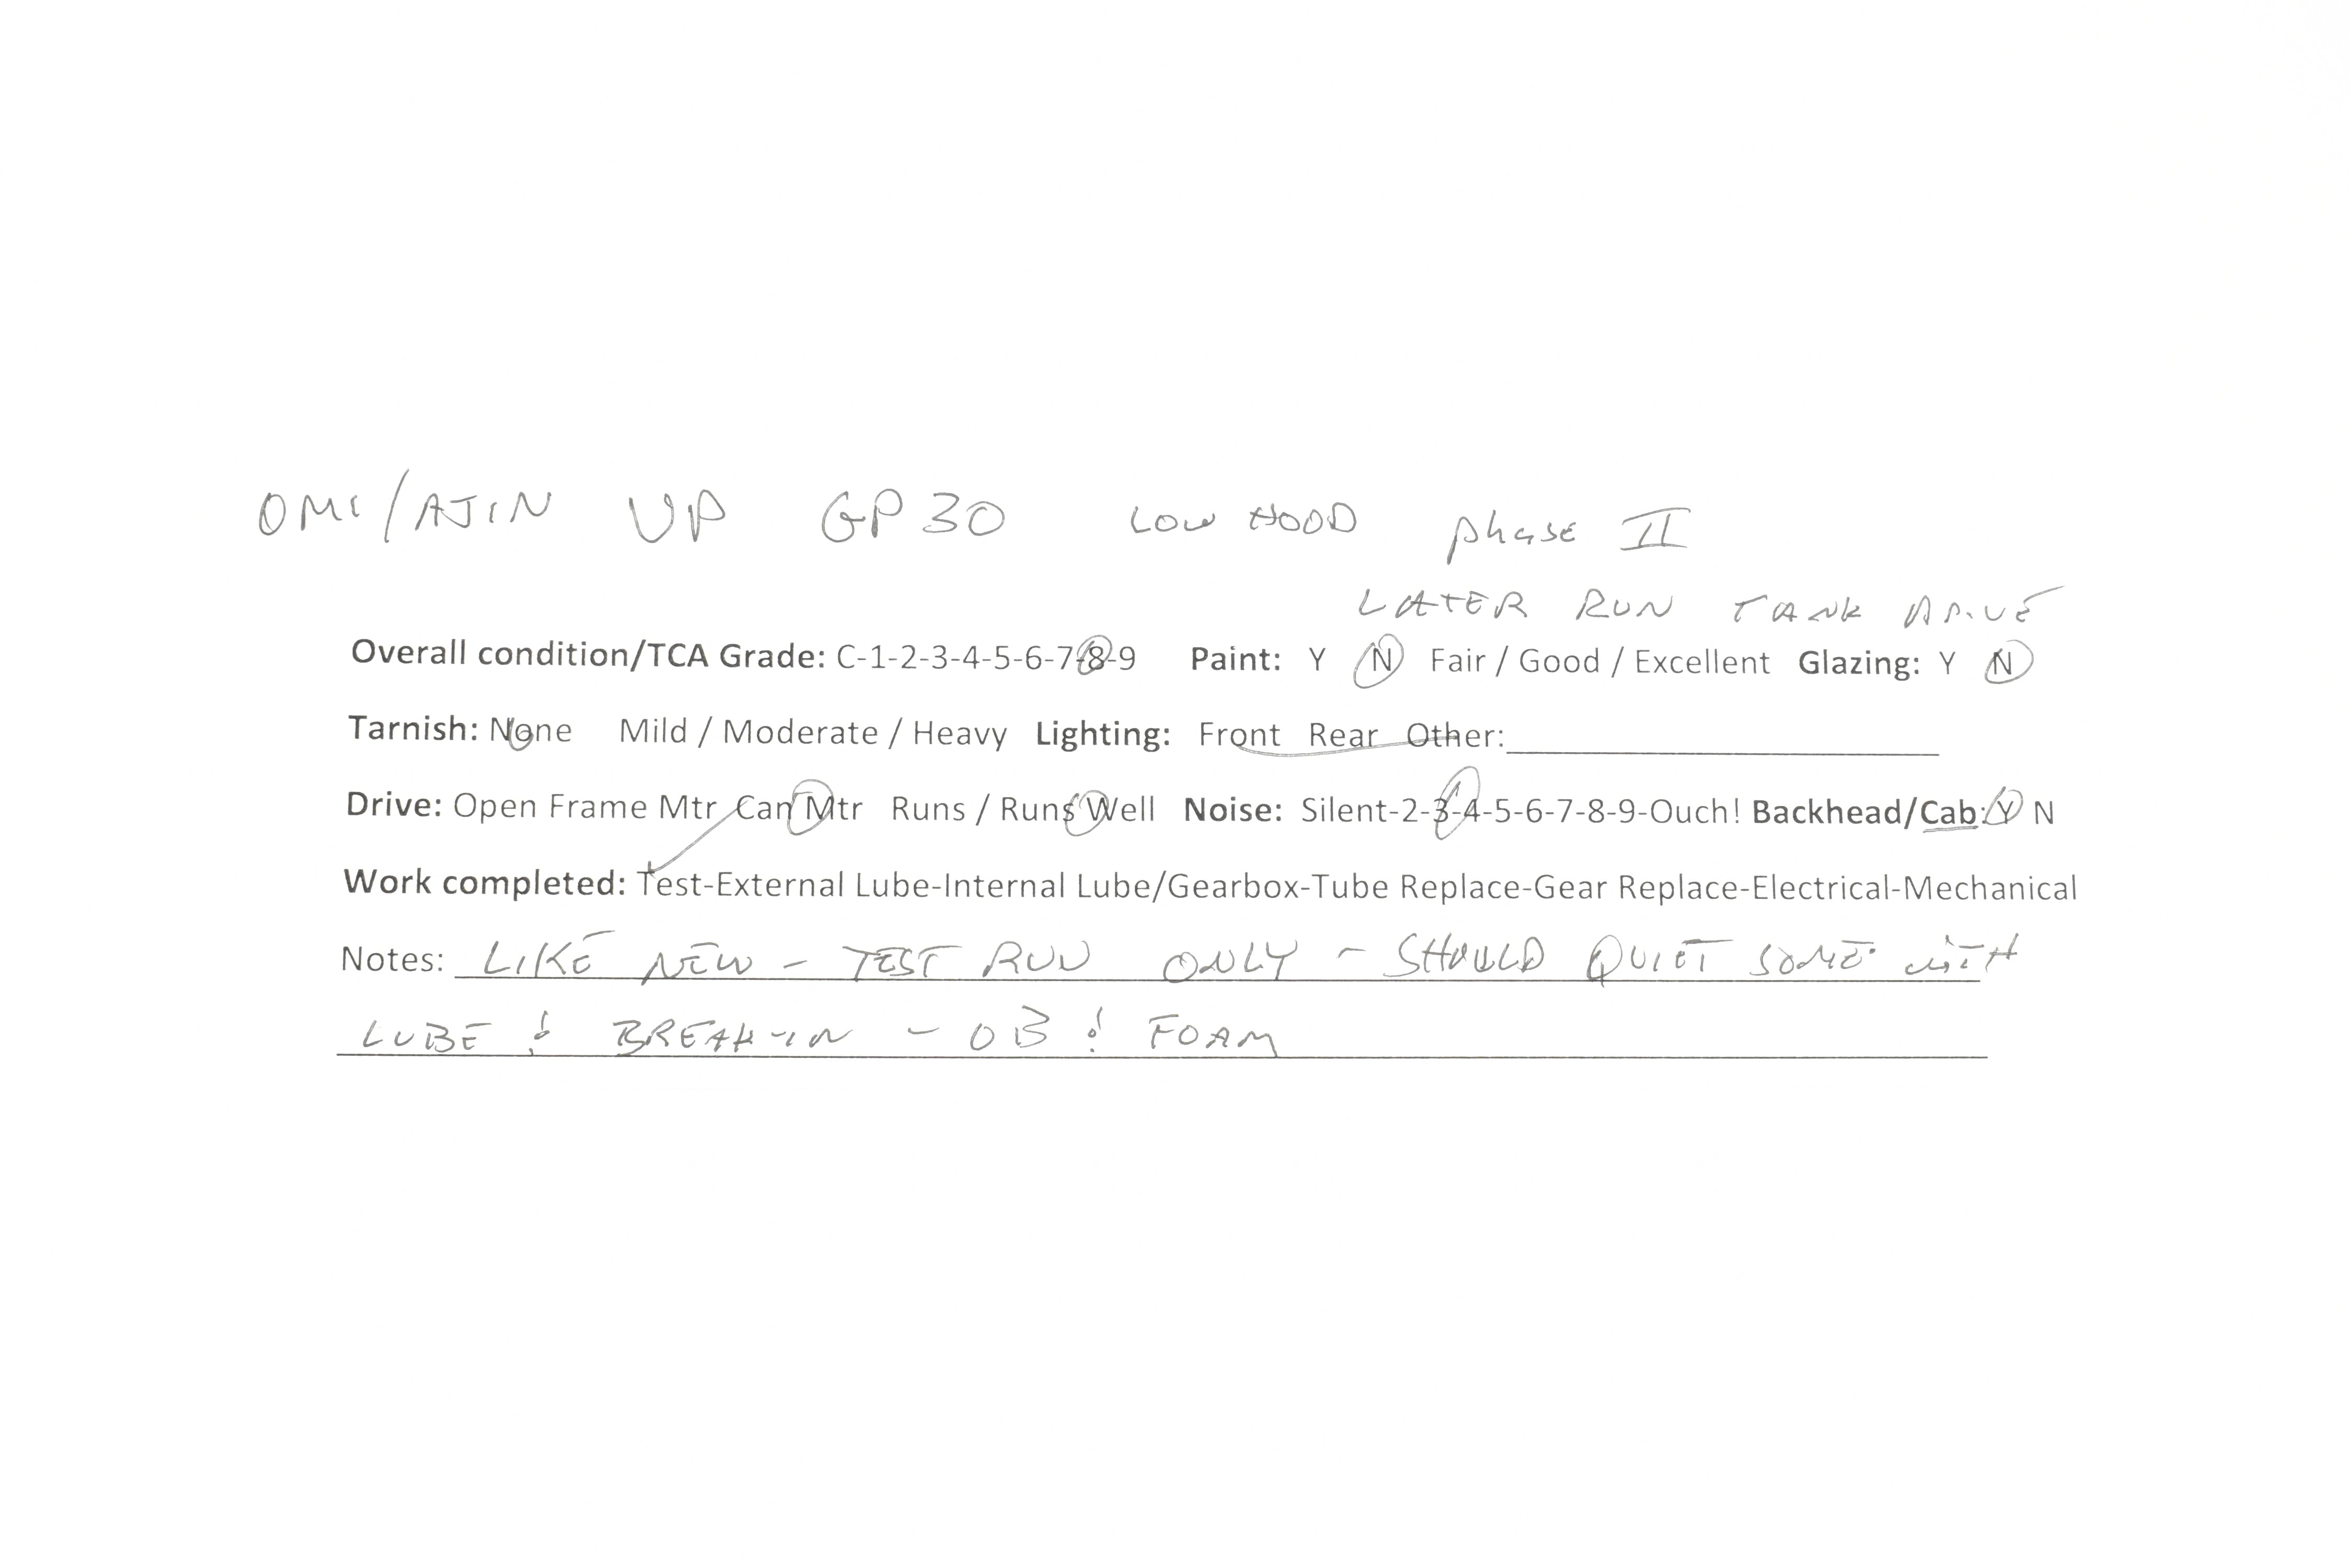 OMI/AJIN UP GP30 LOW HOOD phase II
LATER RUN TANK DRIVE
Overall condition/TCA Grade: C-1-2-3-4-5-6-7-8-9 Paint: Y N Fair / Good / Excellent Glazing: Y N
Tarnish: None Mild / Moderate / Heavy Lighting: Front Rear Other:
Drive: Open Frame Mtr Can Mtr Runs / Runs Well Noise: Silent-2-3-4-5-6-7-8-9-Ouch! Backhead/Cab: Y N
Work completed: Test-External Lube-Internal Lube/Gearbox-Tube Replace-Gear Replace-Electrical-Mechanical
Notes: LIKE NEW - TEST RUN ONLY - SHOULD QUIET SOME with
LUBE & BREAK-IN - OB & FOAM